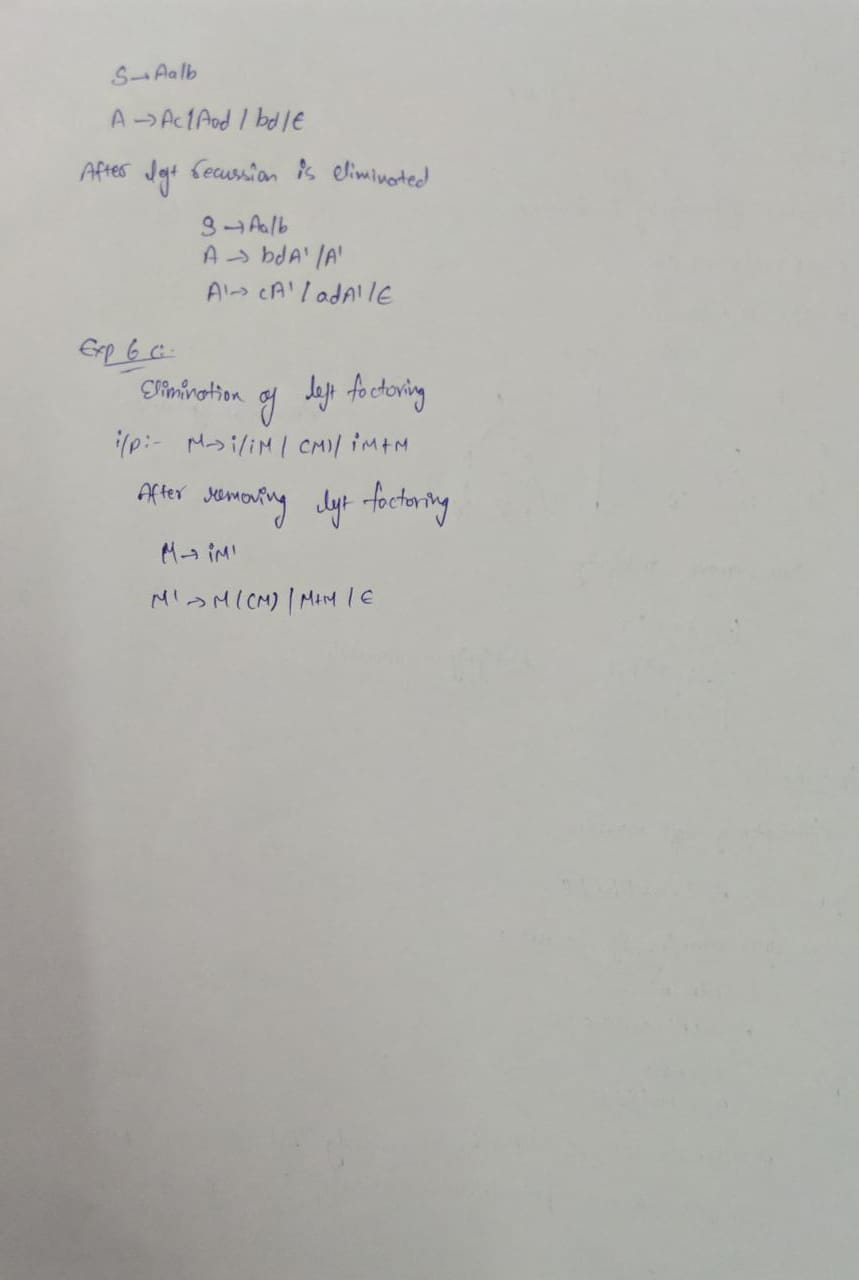 S→Aa/b
A→Ac/Aad/bd/ε
After left recussion is eliminated
S→Aa/b
A→bdA'/A'
A'→cA'/adA'/ε
Exp 6 c:-
Elimination of left factoring
i/p:- M→i/iM/(M)/iM+M
After removing left factoring
M→iM'
M'→M/(M)/M+M/ε